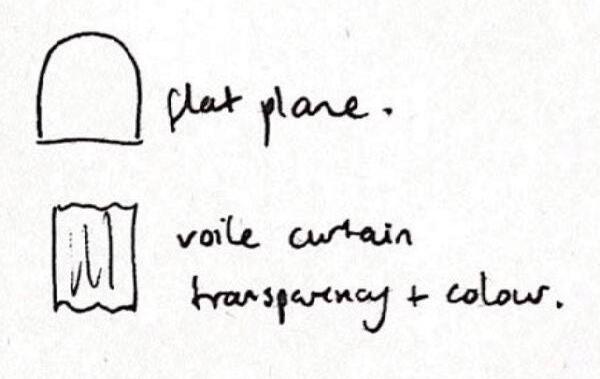 flat plane.
voile curtain
transparency + colour.